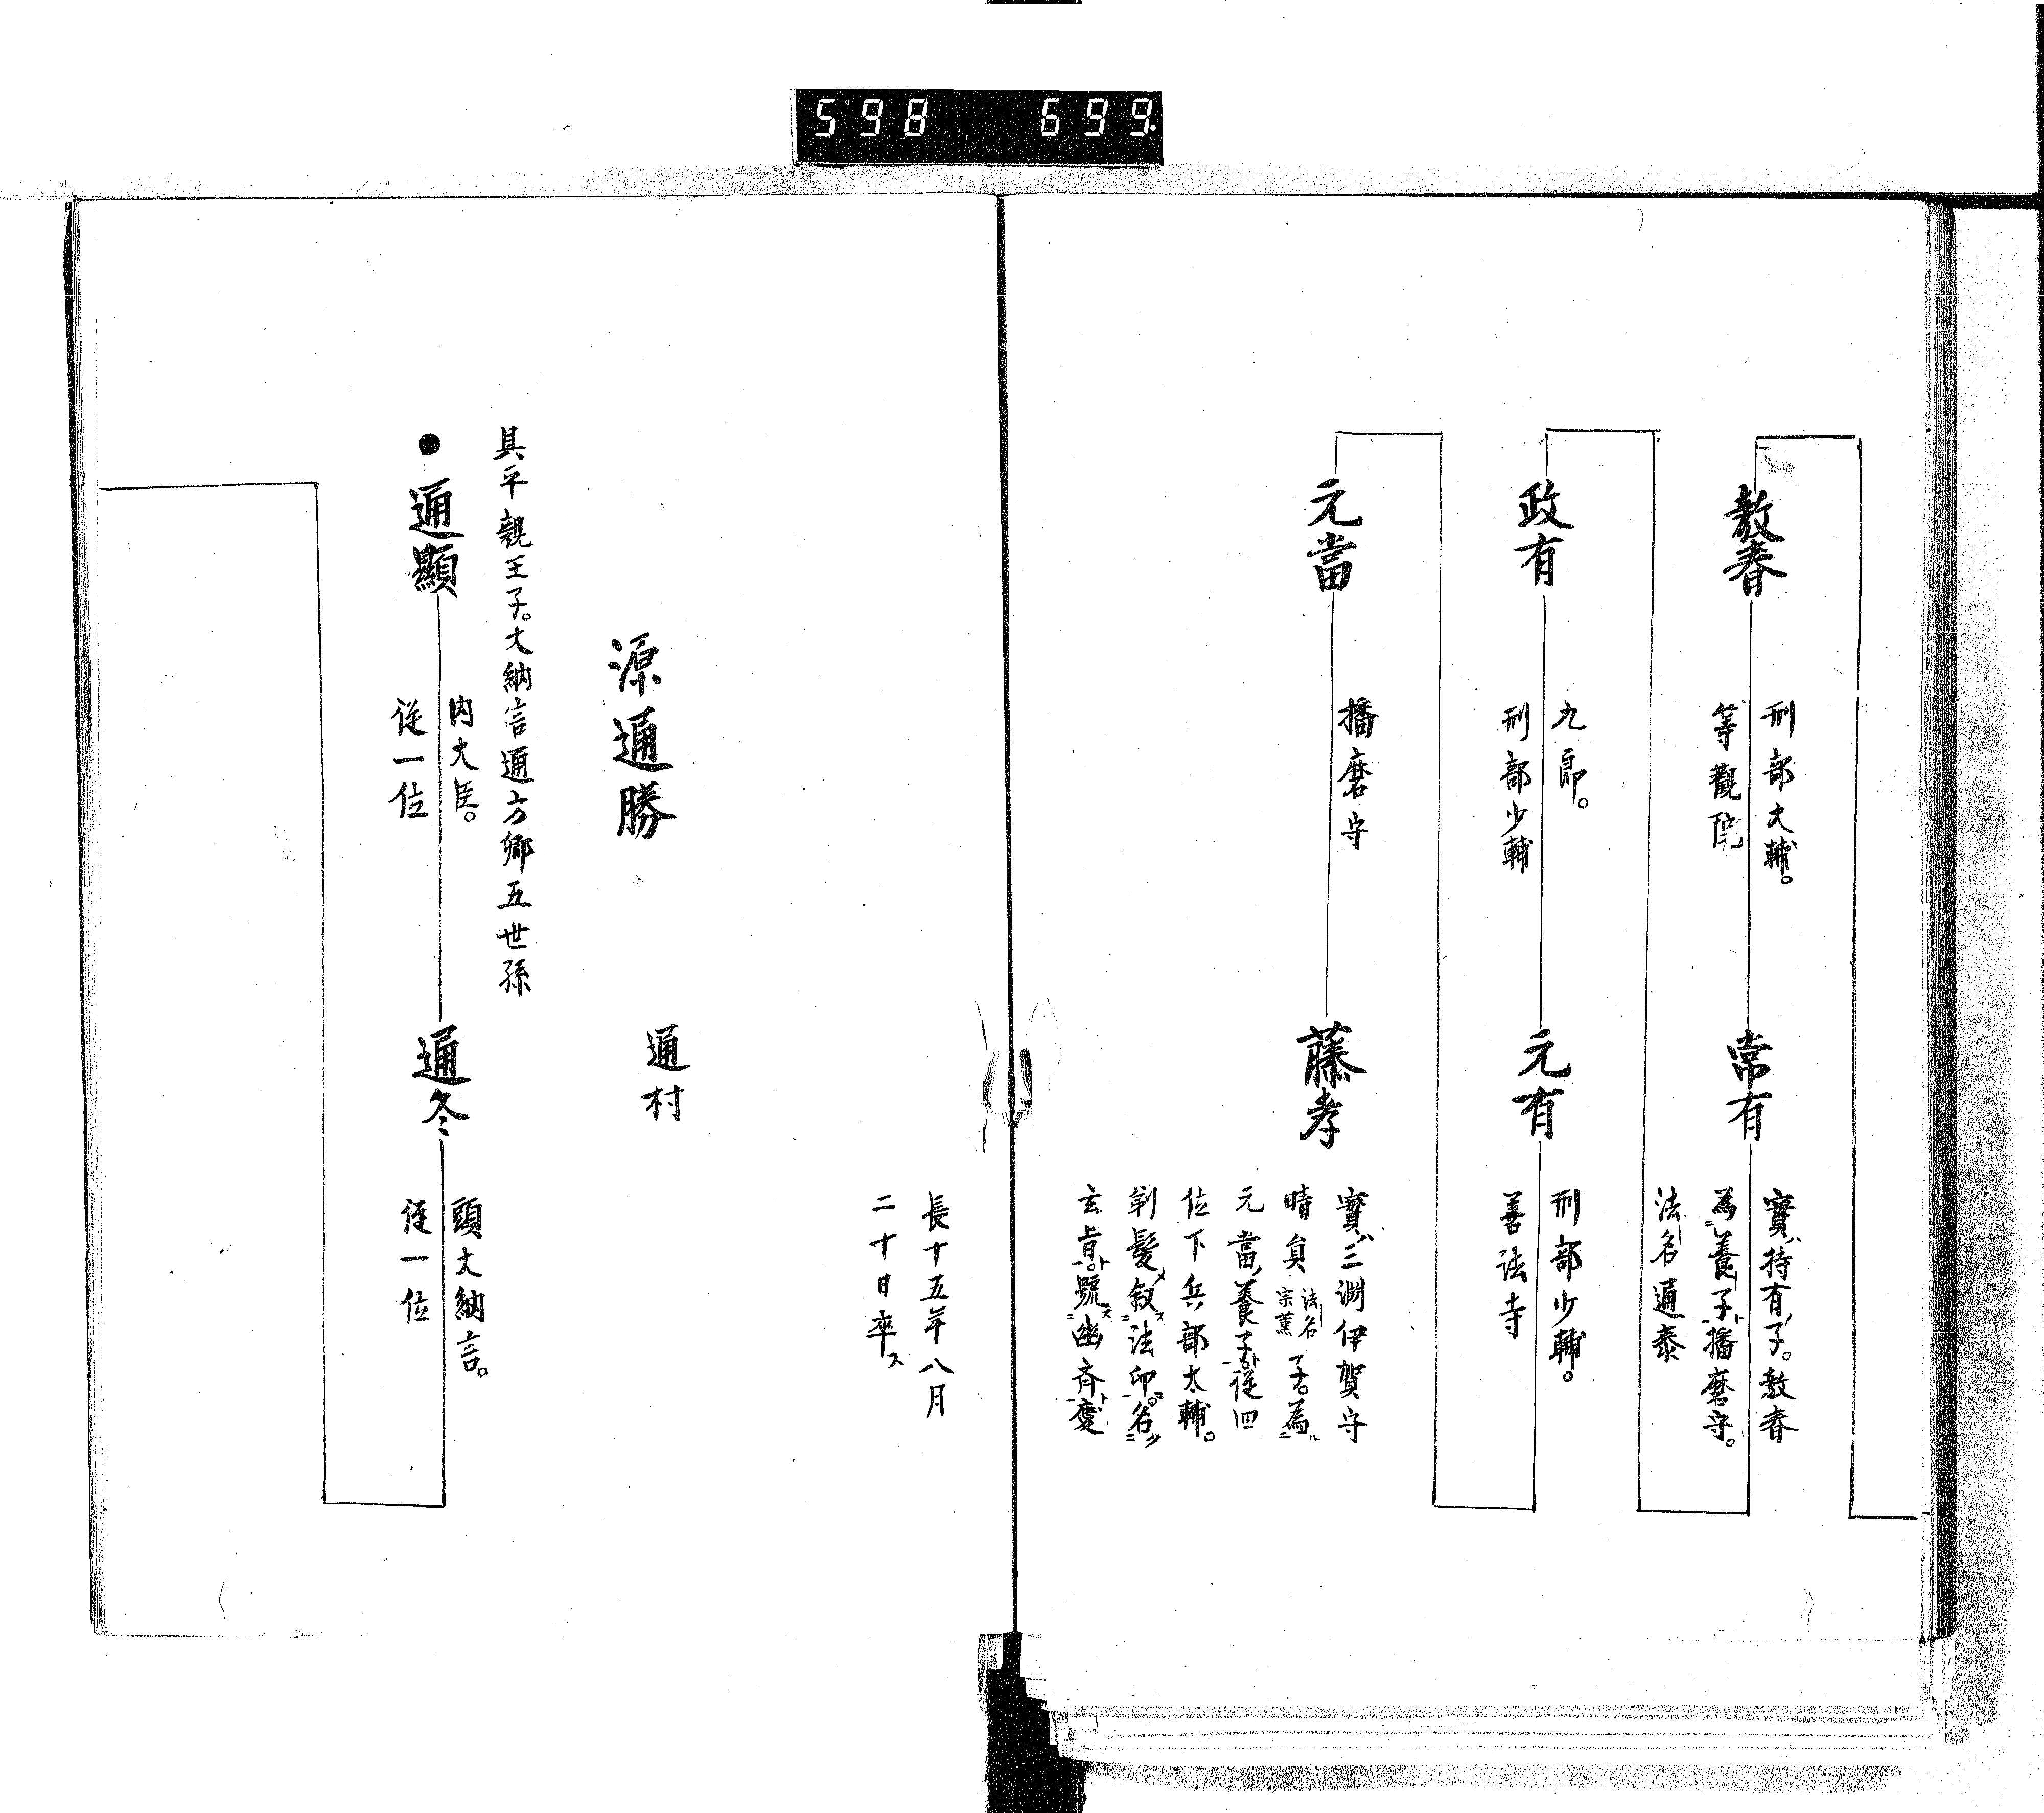 598 699.
教春
刑部大輔。
等觀院
常有
實ハ持有ノ子。教春
為養子ト播磨守。
法名通泰
政有
九郎。
刑部少輔
元有
刑部少輔。
善法寺
元當
播磨守
藤孝
實ハ三淵伊賀守
晴員 法名宗薫 子。為ル
元當ノ養子ト。従四
位下兵部太輔。
剃髮メ叙ス法印ニ。名ク
玄旨ト。號ス幽斉ト慶
長十五年八月
二十日卒ス
源通勝
通村
具平親王子。大納言通方卿五世孫
●通顯
内大臣。
従一位
通冬
頭大納言。
従一位